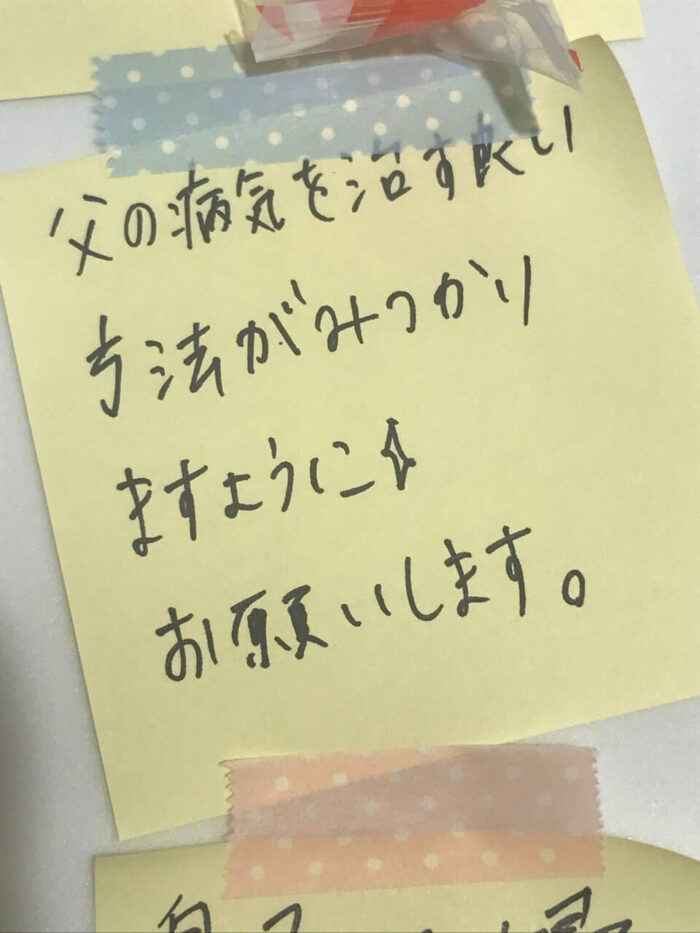 父の病気を治す良い
方法がみつかり
ますように
お願いします。